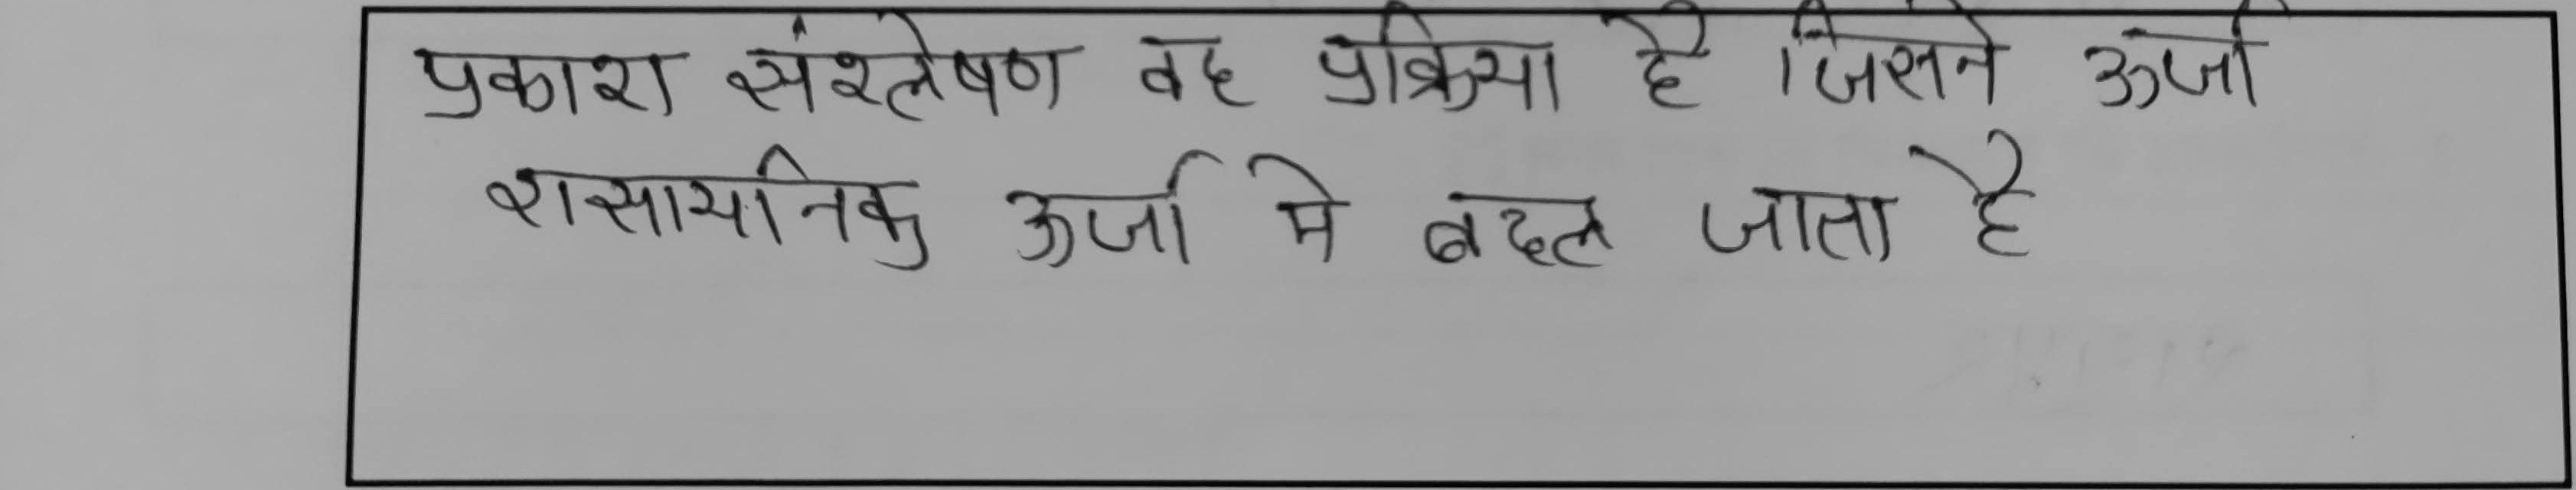 प्रकाश संश्लेषण वह प्रक्रिया है जिसने ऊर्जा
रासायनिक ऊर्जा मे बदल जाता है